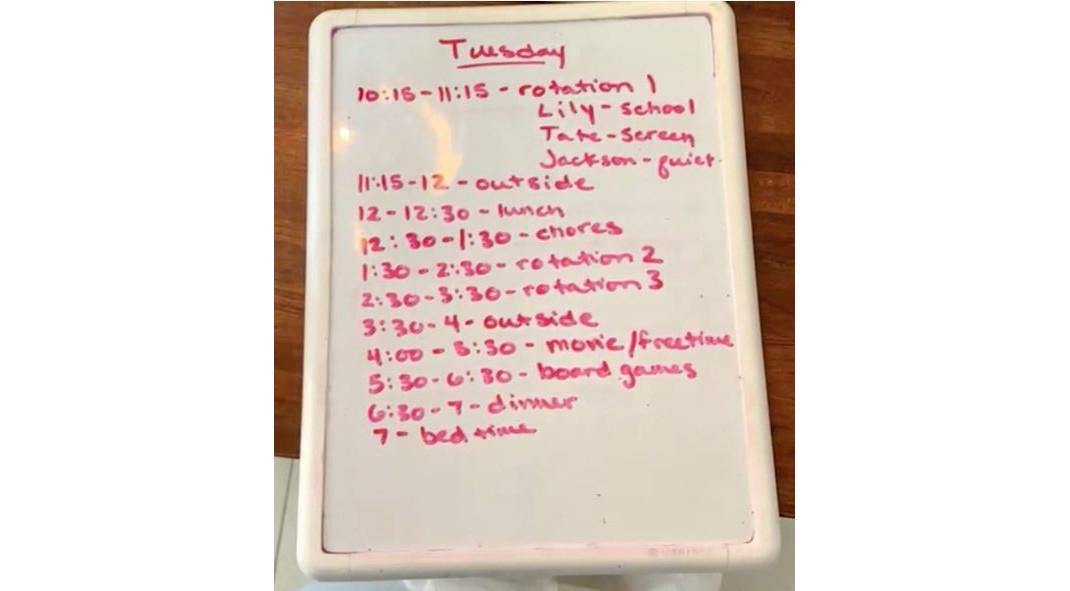 Tuesday
10:15-11:15 - rotation 1
Lily - school
Tate - screen
Jackson - quiet
11:15-12 - outside
12-12:30 - lunch
12:30-1:30 - chores
1:30-2:30 - rotation 2
2:30-3:30 - rotation 3
3:30-4 - outside
4:00-5:30 - movie/freetime
5:30-6:30 - board games
6:30-7 - dinner
7 - bed time